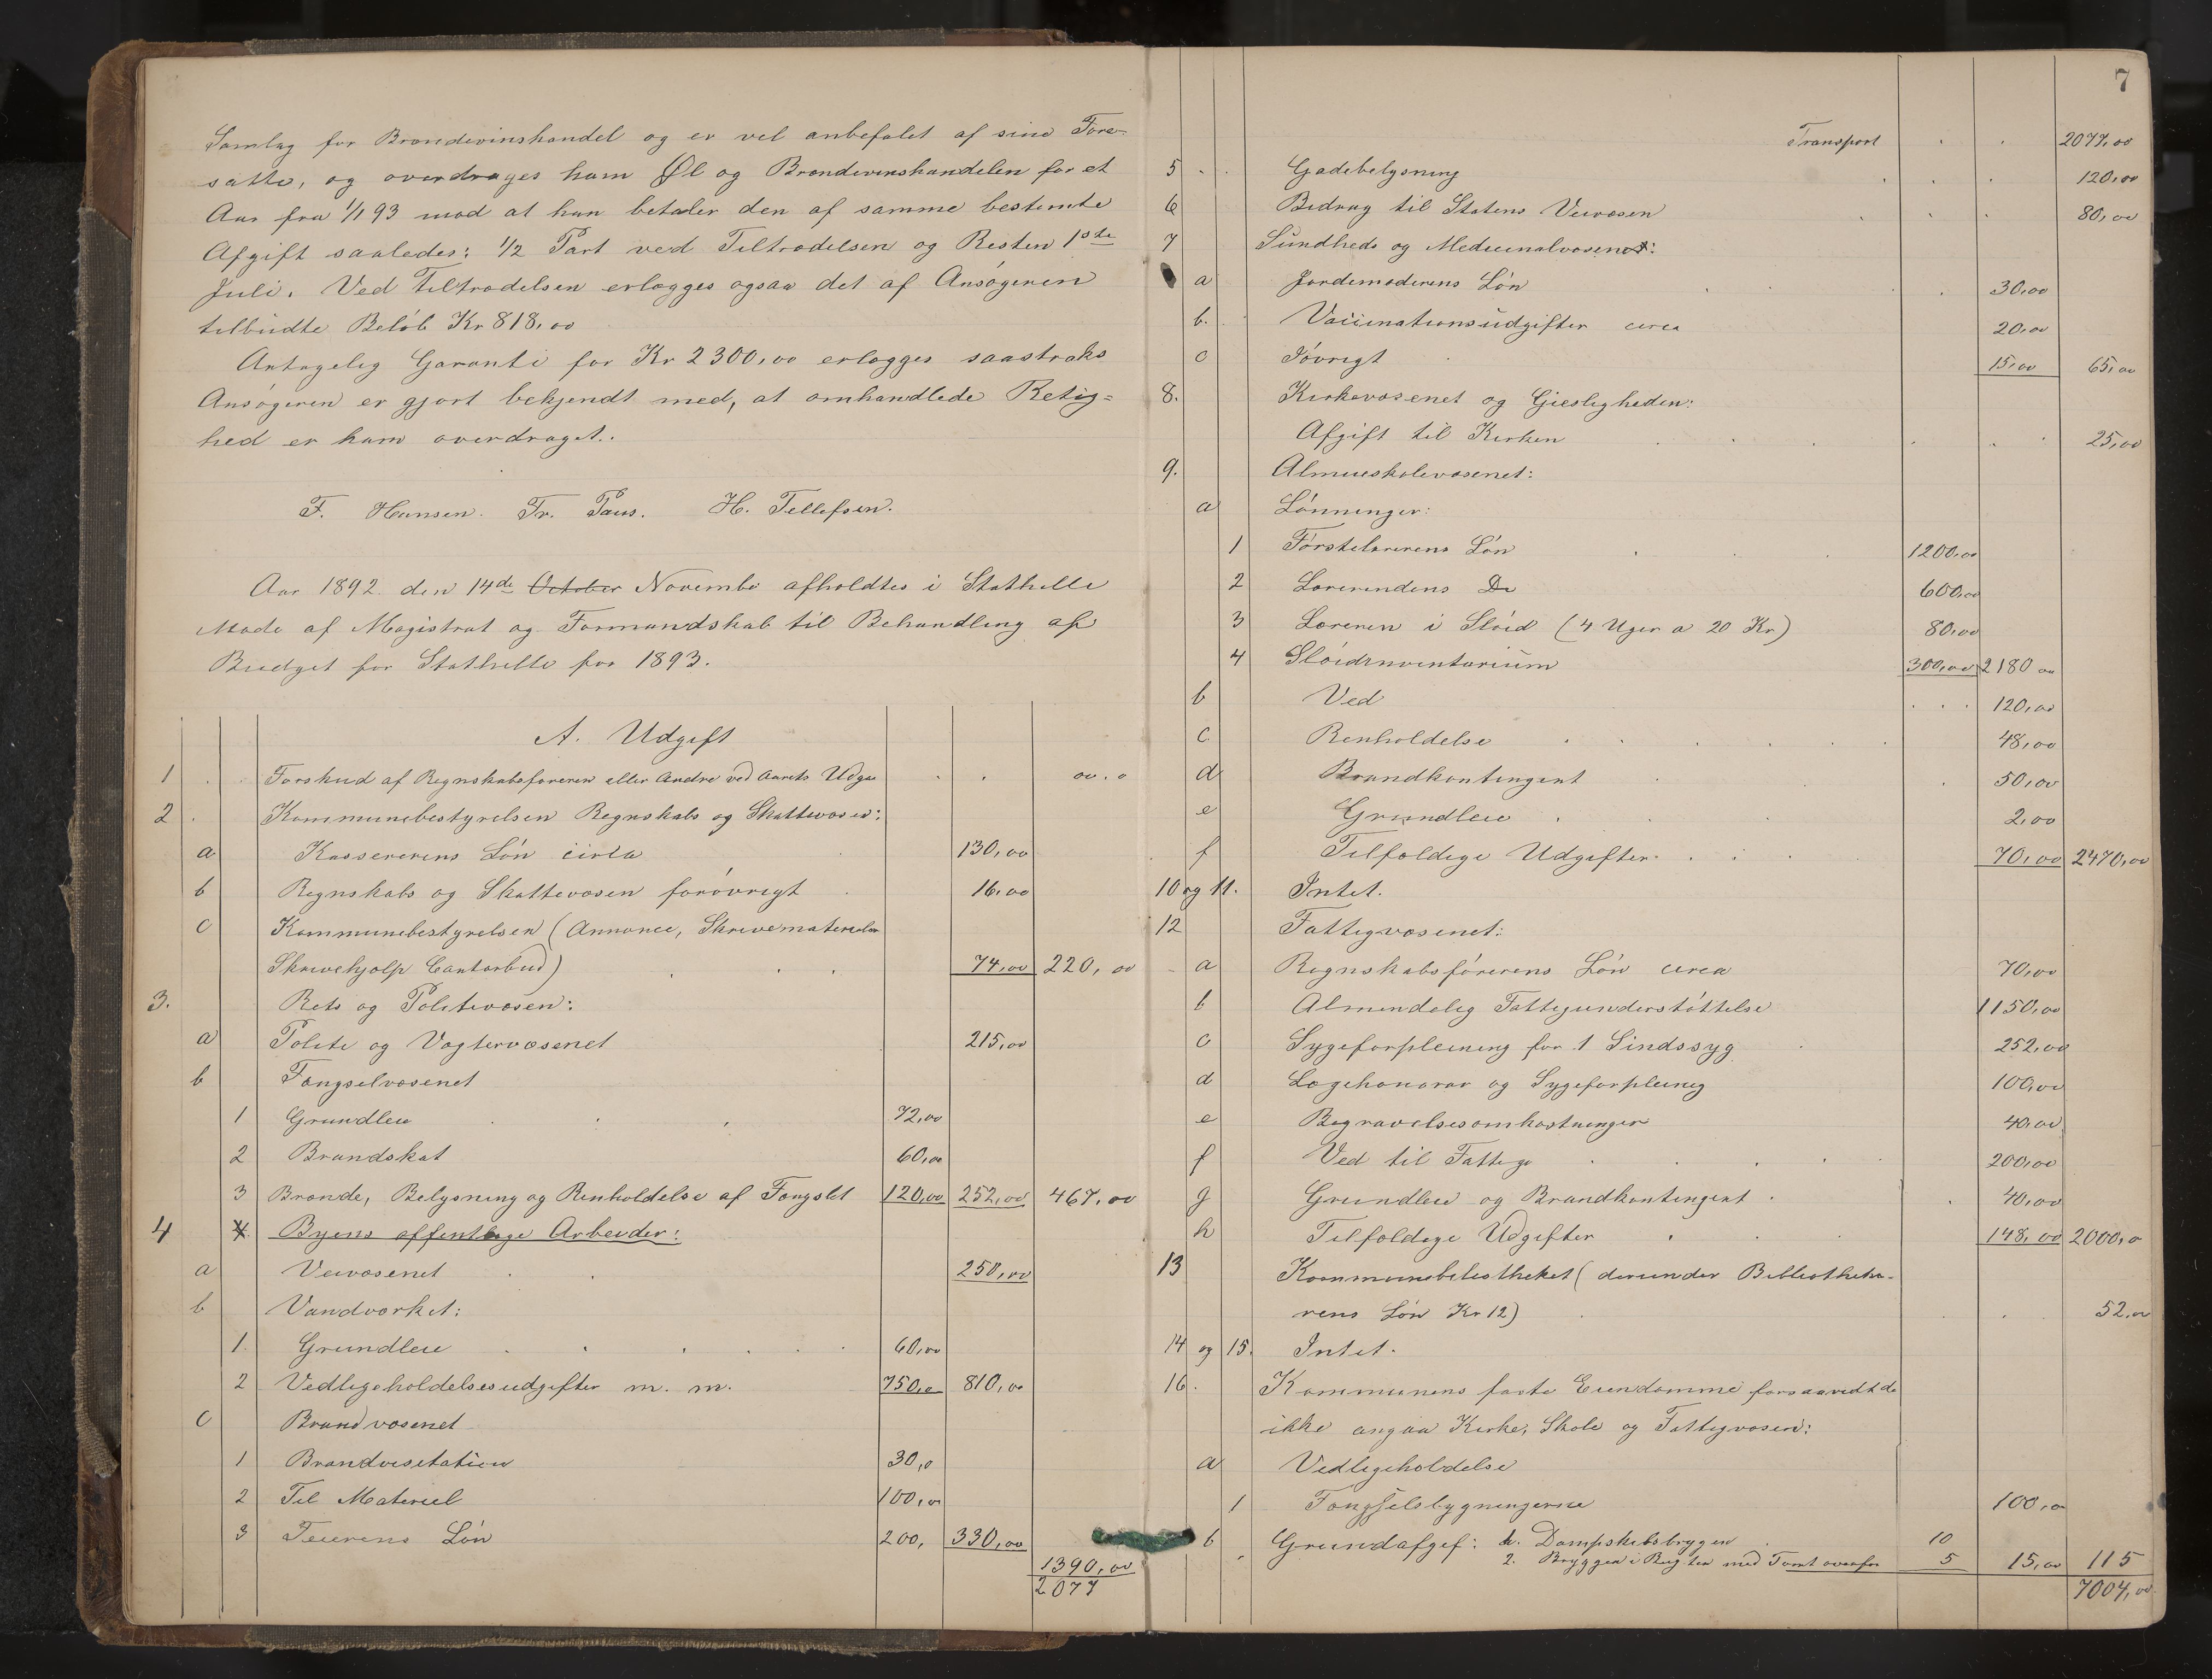 Samlag for Brændevinshandel og er vel anbefalet af sine Fore-
satte, og overdrages ham Øl og Brændevinshandelen for et
Aar fra 1/1 93 mod at han betaler den af samme bestemte
Afgift saaledes: 1/2 Part ved Tiltrædelsen og Resten 1ste
Juli. Ved Tiltrædelsen erlægges ogsaa det af Ansøgeren
tilbudte Beløb Kr 818,00
Antagelig Garanti for Kr 2300,00 erlægges saastraks
Ansøgeren er gjort bekjendt med, at omhandlede Retig=
hed er ham overdraget.
F. Hansen. Fr. Paus. H. Tellefsen.
Aar 1892 den 14de October Novembr afholdtes i Stathelle
Møde af Magistrat og Formandskab til Behandling af
Budget for Stathelle for 1893.
A. Udgift
1 Forskud af Regnskabsføreren eller Andre ved Aarets Udga 00.0
2 Kommunebestyrelsen Regnskabs og Skattevæsen:
a Kassererens Løn circa 130,00
b Regnskabs og Skattevæsen forøvrigt 16,00
c Kommunebestyrelsen (Annonce, Skrivematerialer
Skrivehjælp Contorbud) 74,00 220,00
3. Rets og Politivæsen:
a Politi og Vægtervæsenet 215,00
b Fængselvæsenet
1 Grundleie 72,00
2 Brandskat 60,00
3 Brænde, Belysning og Renholdelse af Fængslet 120,00 252,00 467,00
4 Byens offentlige Arbeider:
a Veivæsenet 250,00
b Vandværket:
1. Grundleie 60,00
2 Vedligeholdelsesudgifter m. m. 750,0 810,00
c Brandvæsenet
1 Brandvisitation 30,0
2 Til Materiel 100,00
3 Feierens Løn 200, 330,00
1390,00
2077
7
Transport 2077,00
5 Gadebelysning 120,00
6 Bidrag til Statens Veivæsen 80,00
7 Sundheds og Medicinalvæsenet:
a Jordemoderens Løn 30,00
b. Vaccinationsudgifter circa 20,00
c Iøvrigt 15,00 65,00
8. Kirkevæsenet og Gieistligheden:
Afgift til Kirken 25,00
9. Almueskolevæsenet:
a Lønninger:
1 Førstelærerens Løn 1200,00
2 Lærerindens Do 600,00
3 Læreren i Sløid (4 Uger a 20 Kr) 80,00
4 Sløidinventarium 300,00 2180 00
b Ved 120,00
c Renholdelse 48,00
d Brandkontingent 50,00
e Grundleie 2,00
f Tilfældige Udgifter 70,00 2470,00
10 og 11. Intet.
12 Fattigvæsenet:
a Regnskabsførerens Løn circa 70,00
b Almindelig Fattigunderstøttelse 1150,00
c Sygeforpleining for 1 Sindssyg 252,00
d Lægehonorar og Sygeforpleinig 100,00
e Begravelsesomkostninger 40,00
f Ved til Fattige 200,00
g Grundleie og Brandkontingent 40,00
h Tilfældige Udgifter 148,00 2000,0
13 Kommunebibliotheket (derunder Bibliotheka-
rens Løn Kr 12) 52,00
14 og 15. Intet.
16. Kommunens faste Eiendomme forsaavidt de
ikke angaa Kirke, Skole og Fattigvæsen:
a Vedligeholdelse
1 Fængselsbygningerne 100,0
b Grundafgif: 1. Dampskibsbryggen 10
2. Bryggen i med Tomt ovenfor 5 15,00 115
7004,00